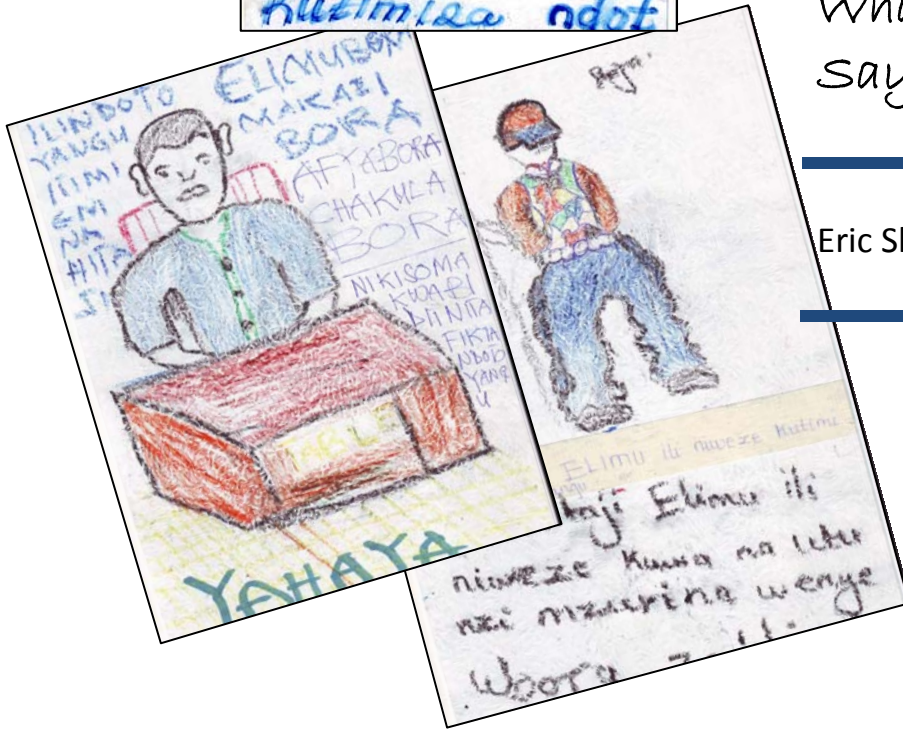 kutimiza ndot
Wha
Say
Eric Sl
ILINDOTO
YANGU
ITIMI
ELIMUBOR
MAKAZI
BORA
AFYABORA
CHAKULA
BORA
NIKISOMA
KWABI
DIINTA
FIKIA
NDOD
YANG
U
TABLE
YAHAYA
ELIMU ili niweze kutimi
ngu
Elimu ili
niweze kuwa na ubu
nzi mzuri na wenye
Ubora